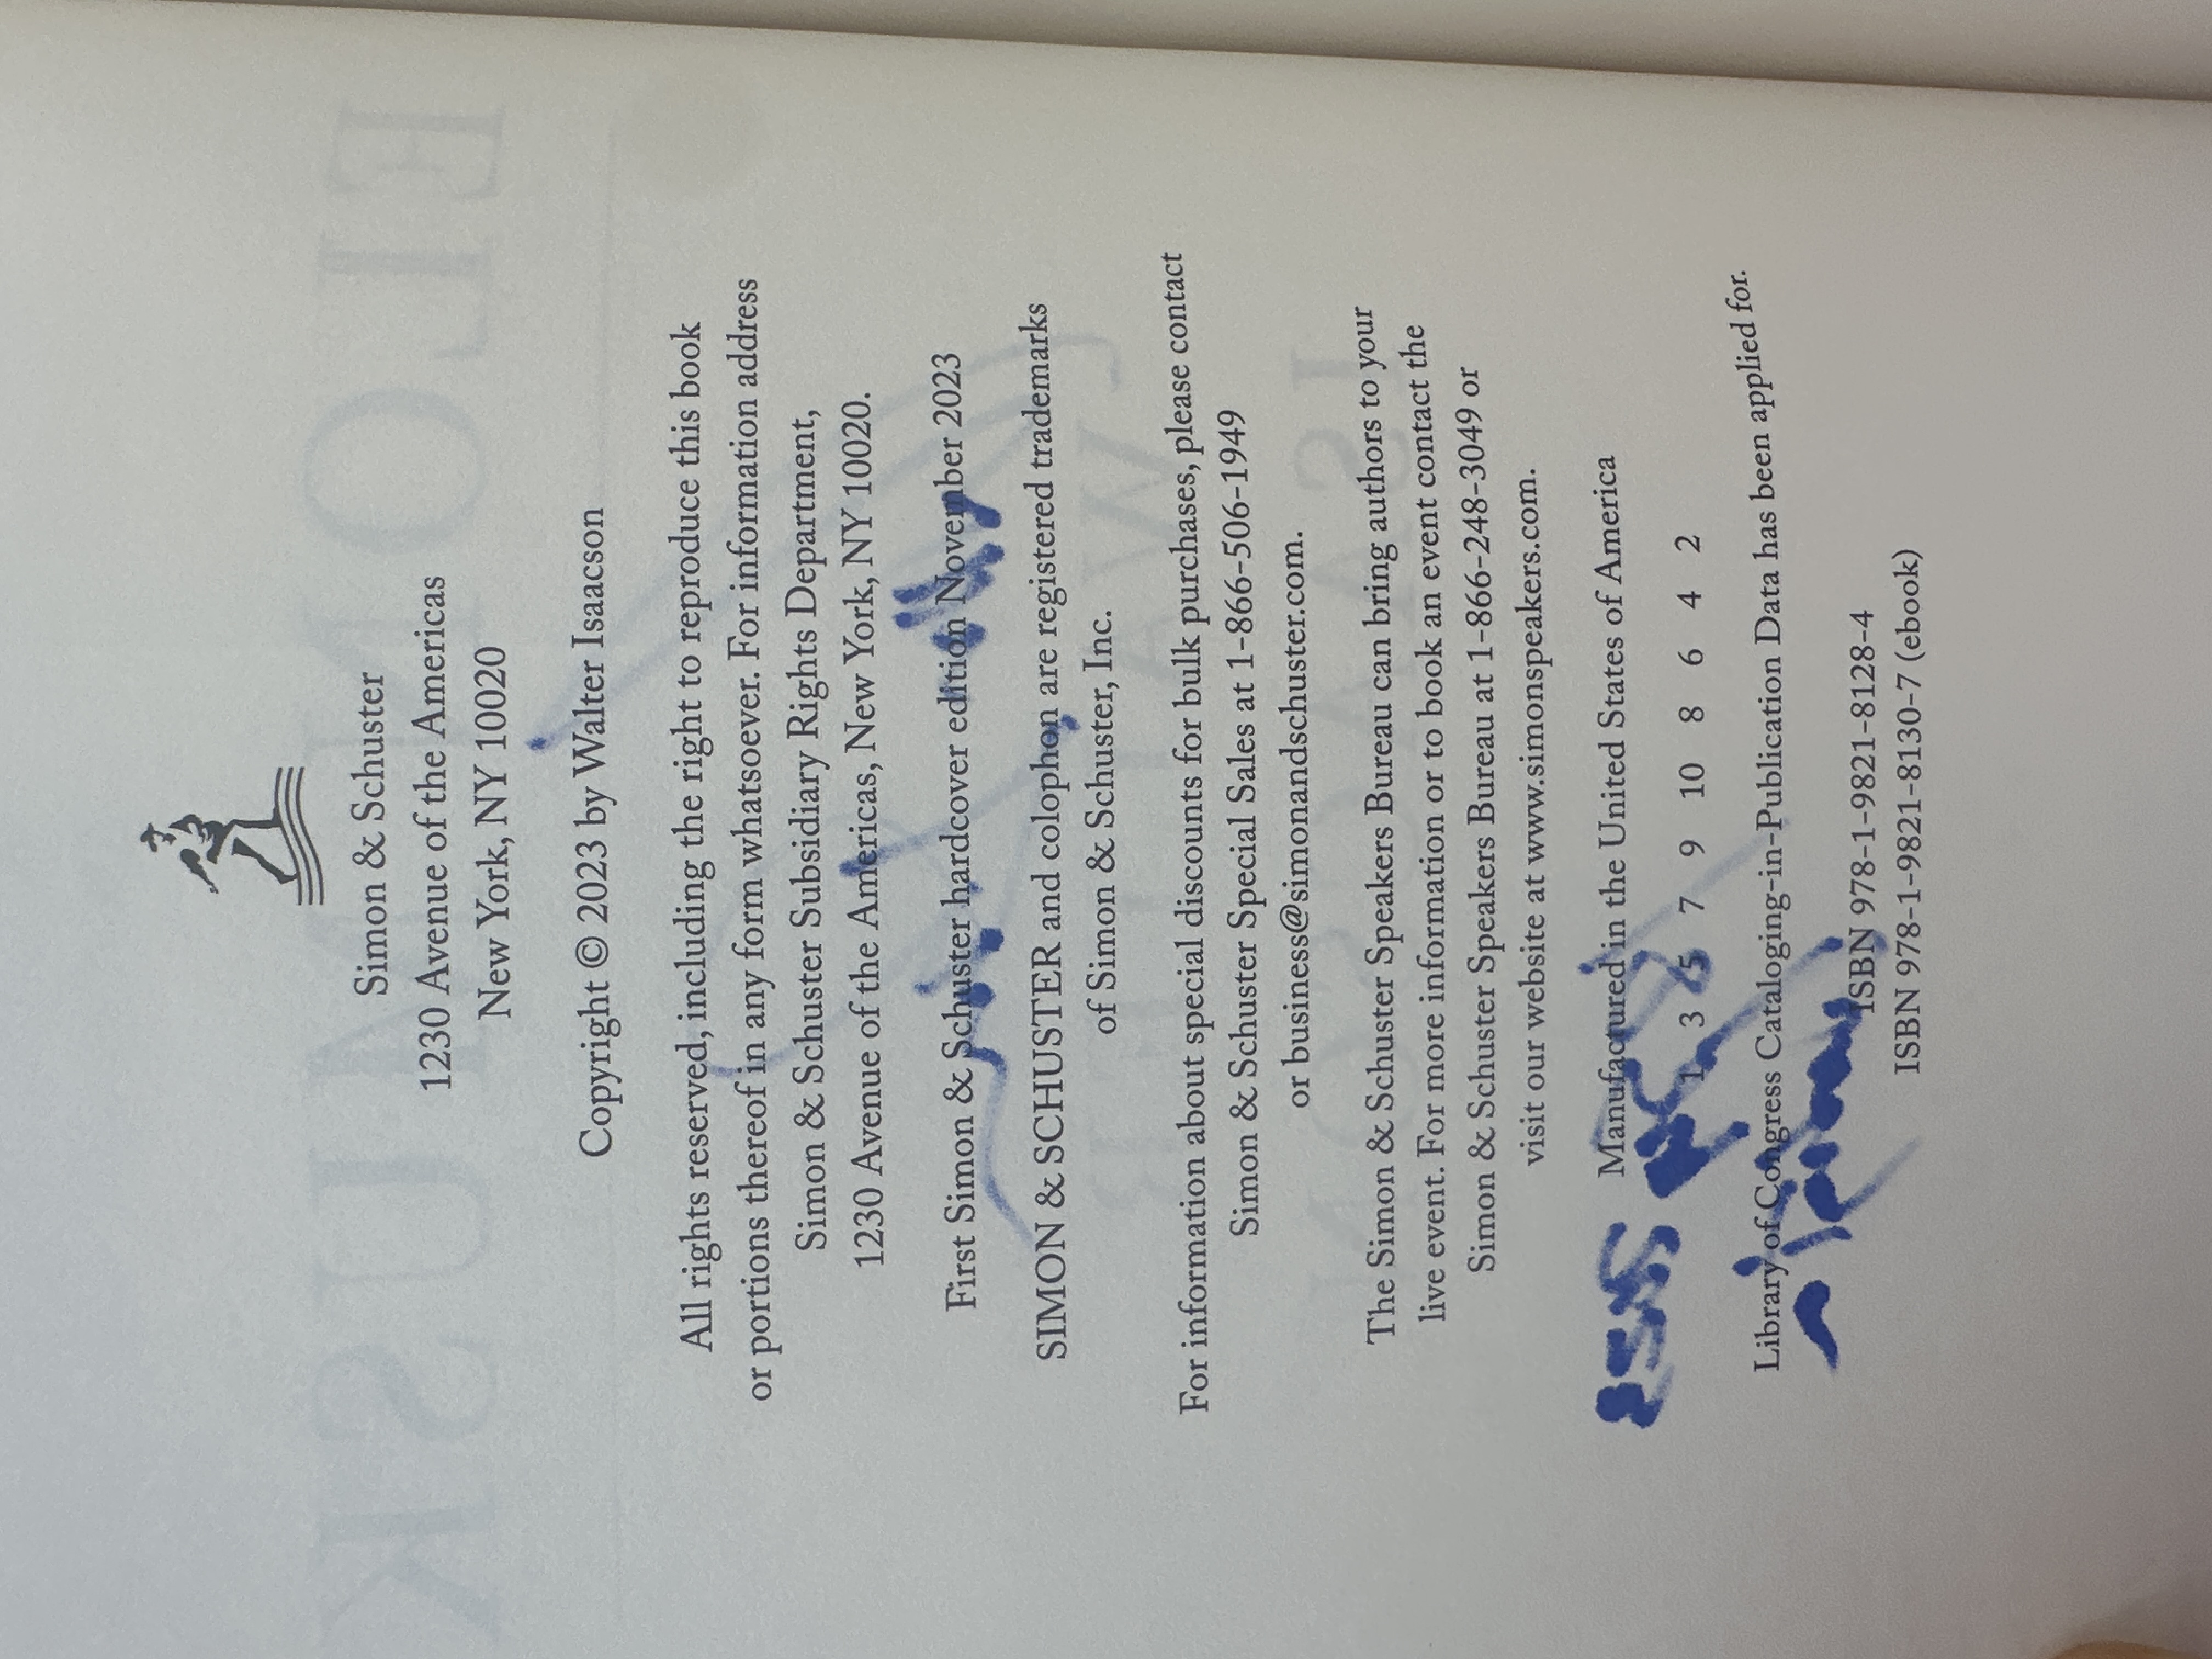 Simon & Schuster
1230 Avenue of the Americas
New York, NY 10020
Copyright © 2023 by Walter Isaacson
All rights reserved, including the right to reproduce this book
or portions thereof in any form whatsoever. For information address
Simon & Schuster Subsidiary Rights Department,
1230 Avenue of the Americas, New York, NY 10020.
First Simon & Schuster hardcover edition November 2023
SIMON & SCHUSTER and colophon are registered trademarks
of Simon & Schuster, Inc.
For information about special discounts for bulk purchases, please contact
Simon & Schuster Special Sales at 1-866-506-1949
or business@simonandschuster.com.
The Simon & Schuster Speakers Bureau can bring authors to your
live event. For more information or to book an event contact the
Simon & Schuster Speakers Bureau at 1-866-248-3049 or
visit our website at www.simonspeakers.com.
Manufactured in the United States of America
1 3 5 7 9 10 8 6 4 2
Library of Congress Cataloging-in-Publication Data has been applied for.
ISBN 978-1-9821-8128-4
ISBN 978-1-9821-8130-7 (ebook)